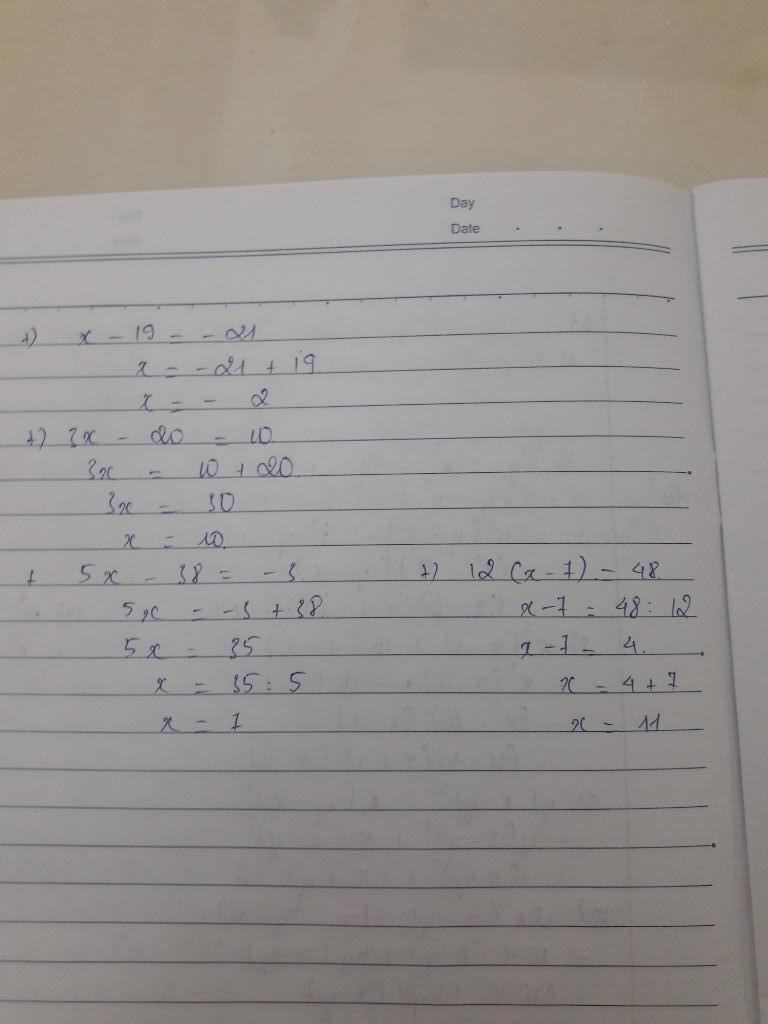 Day
Date . . .
+) x - 19 = - 21
x = - 21 + 19
x = - 2
+) 3x - 20 = 10
3x = 10 + 20
3x = 30
x = 10
+ 5x - 38 = -3
5x = -3 + 38
5x = 35
x = 35 : 5
x = 7
+) 12 (x - 7) = 48
x - 7 = 48 : 12
x - 7 = 4.
x = 4 + 7
x = 11